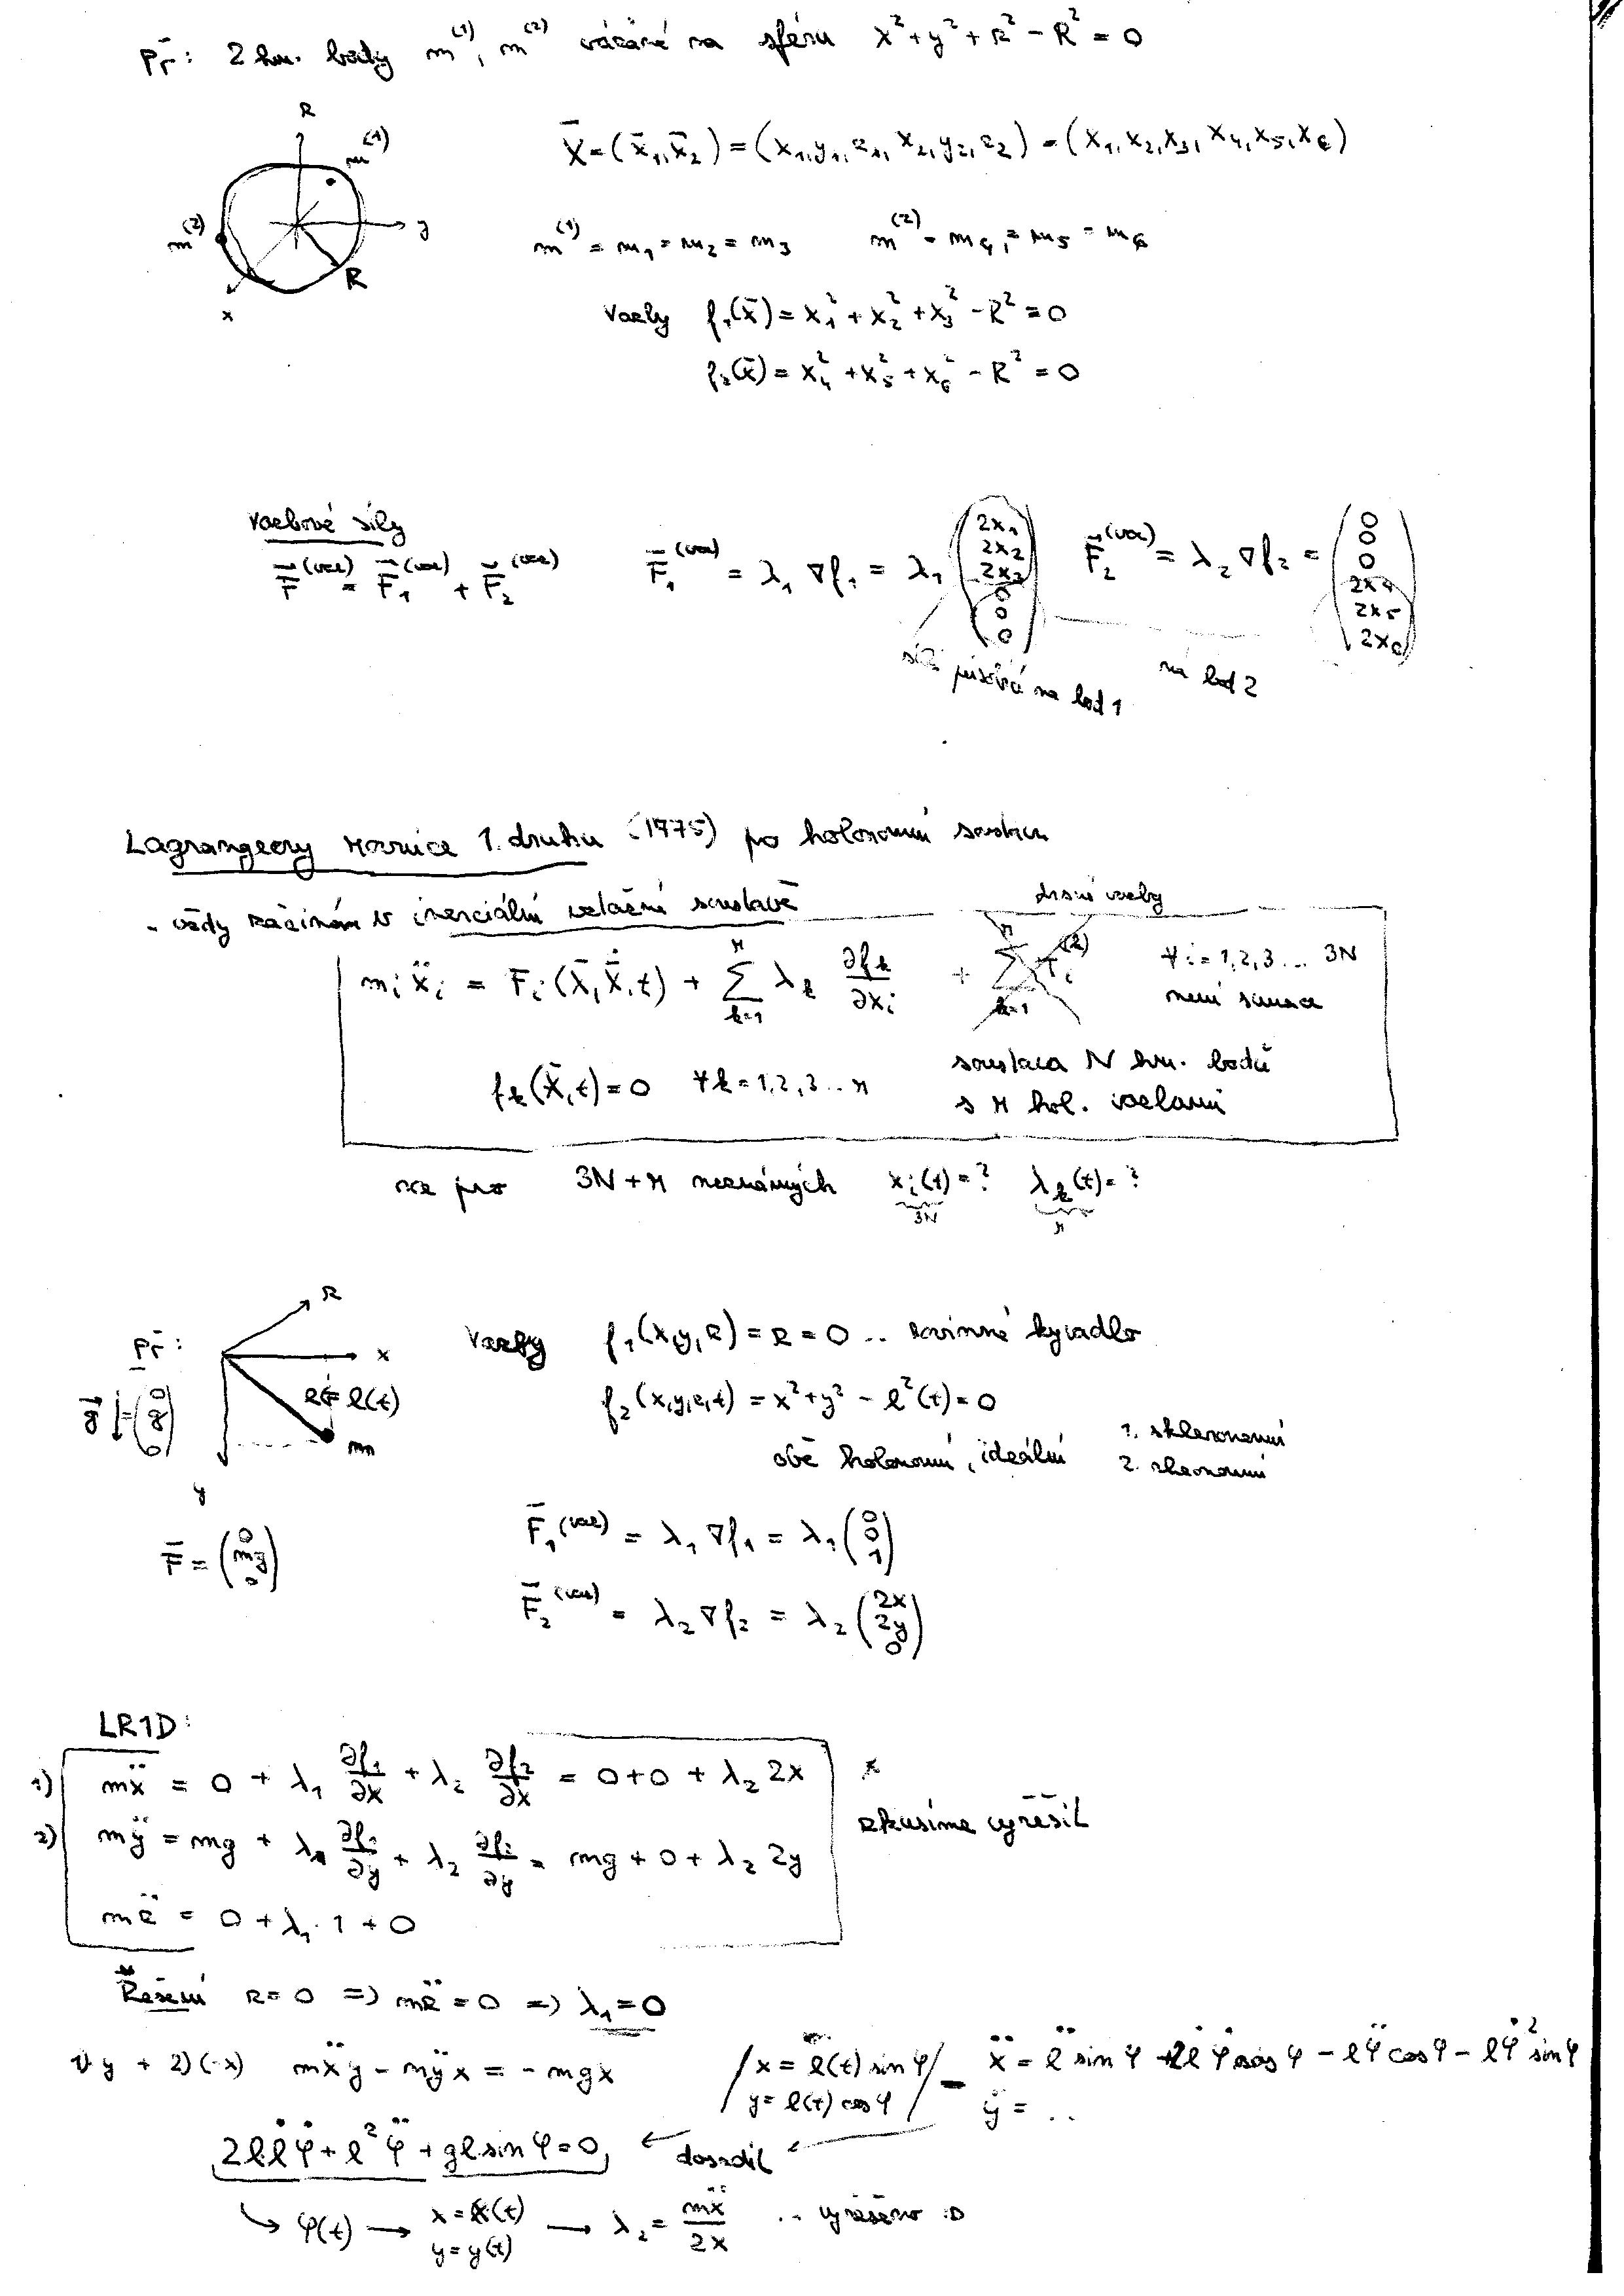 Př: 2 hm. body m⁽¹⁾, m⁽²⁾ vázané na sféru x² + y² + z² − R² = 0
z
m⁽¹⁾
m⁽²⁾
y
R
x
X̄ = (x̄₁, x̄₂) = (x₁, y₁, z₁, x₂, y₂, z₂) = (x₁, x₂, x₃, x₄, x₅, x₆)
m⁽¹⁾ = m₁ = m₂ = m₃ m⁽²⁾ = m₄ = m₅ = m₆
vazby f₁(x̄) = x₁² + x₂² + x₃² − R² = 0
f₂(x̄) = x₄² + x₅² + x₆² − R² = 0
vazbové síly
F̄⁽ᵛᵃᶻ⁾ = F̄₁⁽ᵛᵃᶻ⁾ + F̄₂⁽ᵛᵃᶻ⁾ F̄₁⁽ᵛᵃᶻ⁾ = λ₁ ∇f₁ = λ₁ (2x₁ 2x₂ 2x₃ 0 0 0) F̄₂⁽ᵛᵃᶻ⁾ = λ₂ ∇f₂ = (0 0 0 2x₄ 2x₅ 2x₆)
síla působící na bod 1
na bod 2
Lagrangeovy rovnice 1. druhu (1775) po holonomní soustavu
- vždy začínám v inerciální vztažné soustavě
drsné vazby
mᵢ ẍᵢ = Fᵢ(x̄, ẋ̄, t) + Σₖ₌₁ʳ λₖ ∂fₖ/∂xᵢ + Σₖ₌₁ʳ Tᵢ⁽ᵏ⁾ ∀i = 1,2,3... 3N
není sumace
fₖ(x̄,t) = 0 ∀k = 1,2,3...r soustava N hm. bodů
s r hol. vazbami
rce pro 3N + r neznámých xᵢ(t) = ? λₖ(t) = ?
3N r
Př:
z
x
l = l(t)
m
y
g⃗ ↓ = (0 g 0)
F̄ = (0 mg 0)
Vazby f₁(x,y,z) = z = 0 .. rovinné kyvadlo
f₂(x,y,z,t) = x² + y² − l²(t) = 0
obě holonomní, ideální 1. skleronomní
2. rheonomní
F̄₁⁽ᵛᵃᶻ⁾ = λ₁ ∇f₁ = λ₁ (0 0 1)
F̄₂⁽ᵛᵃᶻ⁾ = λ₂ ∇f₂ = λ₂ (2x 2y 0)
LR1D:
1) mẍ = 0 + λ₁ ∂f₁/∂x + λ₂ ∂f₂/∂x = 0 + 0 + λ₂ 2x *
zkusíme vyřešit
2) mÿ = mg + λ₁ ∂f₁/∂y + λ₂ ∂f₂/∂y = mg + 0 + λ₂ 2y
mz̈ = 0 + λ₁ · 1 + 0
* Řešení z = 0 => mz̈ = 0 => λ₁ = 0
1) y + 2)(-x) mẍy − mÿx = −mgx / x = l(t) sin φ / ẍ = l̈ sin φ + 2l̇ φ̇ cos φ − lφ̈ cos φ − lφ̇² sin φ
y = l(t) cos φ ÿ = ..
2l l̇ φ̇ + l² φ̈ + gl sin φ = 0 ← dosadit
↳ φ(t) → x = x(t) y = y(t) → λ₂ = mẍ/2x .. vyřešeno :D